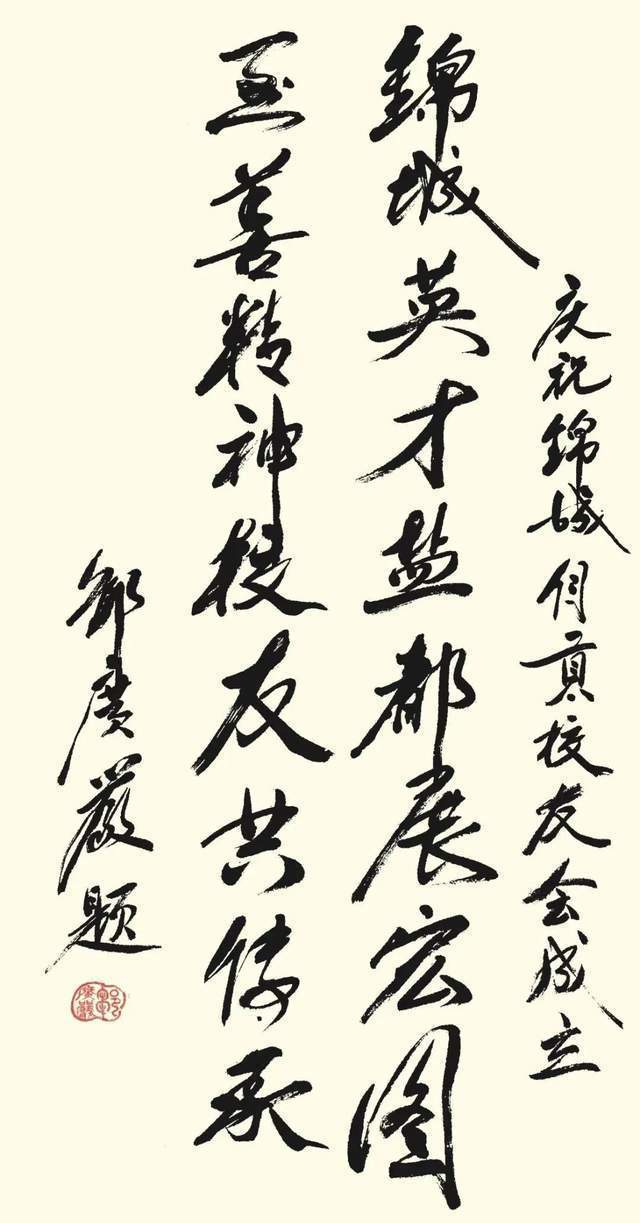 庆祝錦城自貢校友会成立
錦城英才盐都展宏图
至善精神校友共传承
邹广严题